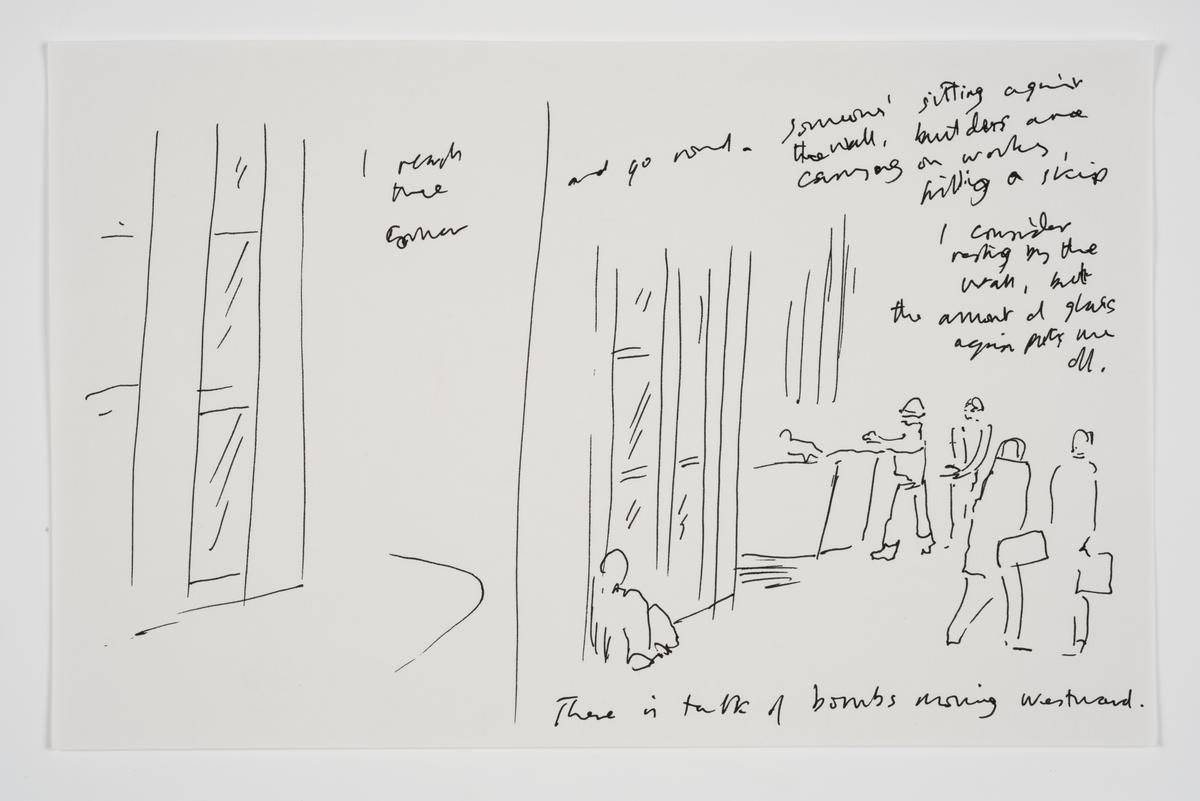 I reach
the
corner
and go round. Someone's sitting against
the wall, builders are
carrying on works,
filling a skip
I consider
resting by the
wall, but
the amount of glass
again puts me
off.
There is talk of bombs moving westward.